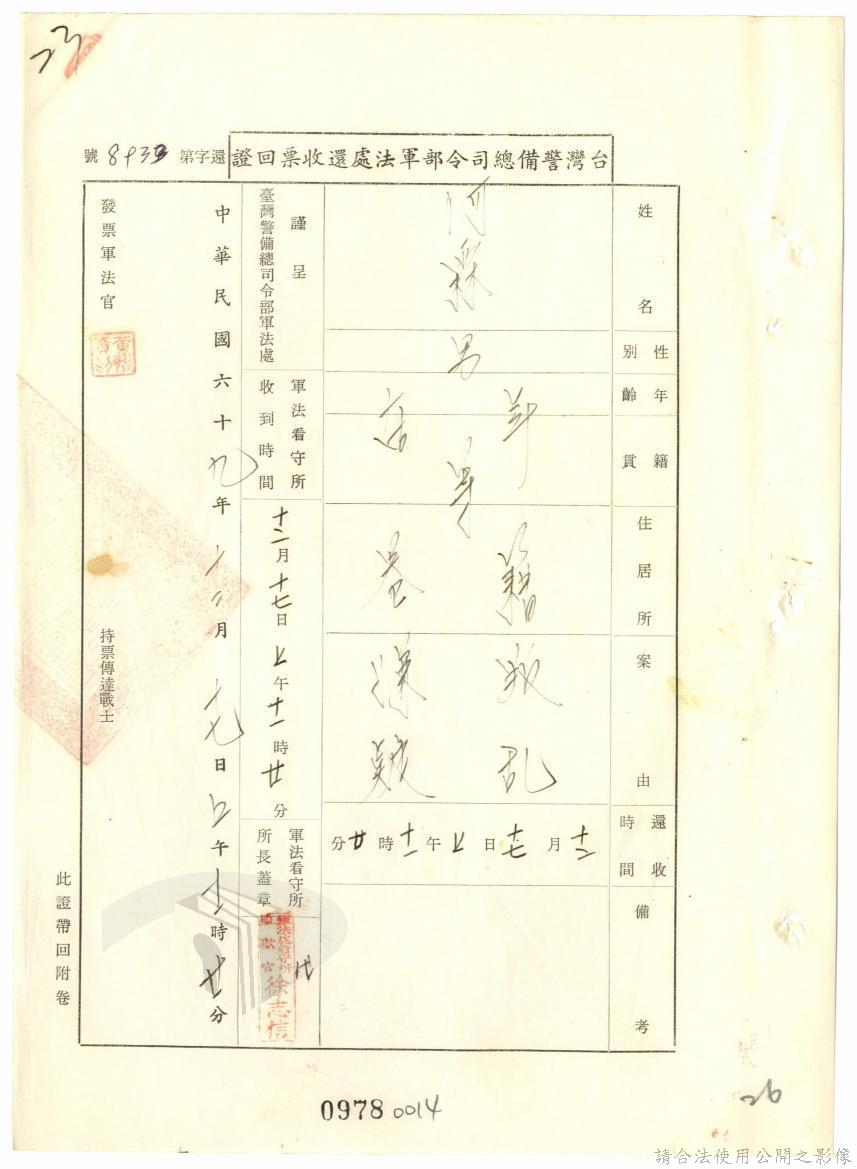 23
台灣警備總司令部軍法處還收票回證
還字第 號
姓名
性別
男
年齡
籍貫
住居所
年籍
在卷
案由
叛乱
嫌疑
還收時間
十二月十七日上午十一時廿分
備考
謹呈
臺灣警備總司令部軍法處
軍法看守所
收到時間
十二月十七日上午十一時廿分
軍法看守所
所長蓋章
徐志信
代
中華民國六十九年十二月十七日上午十一時廿分
發票軍法官
持票傳達戰士
此證帶回附卷
0978 0014
26
請合法使用公開之影像